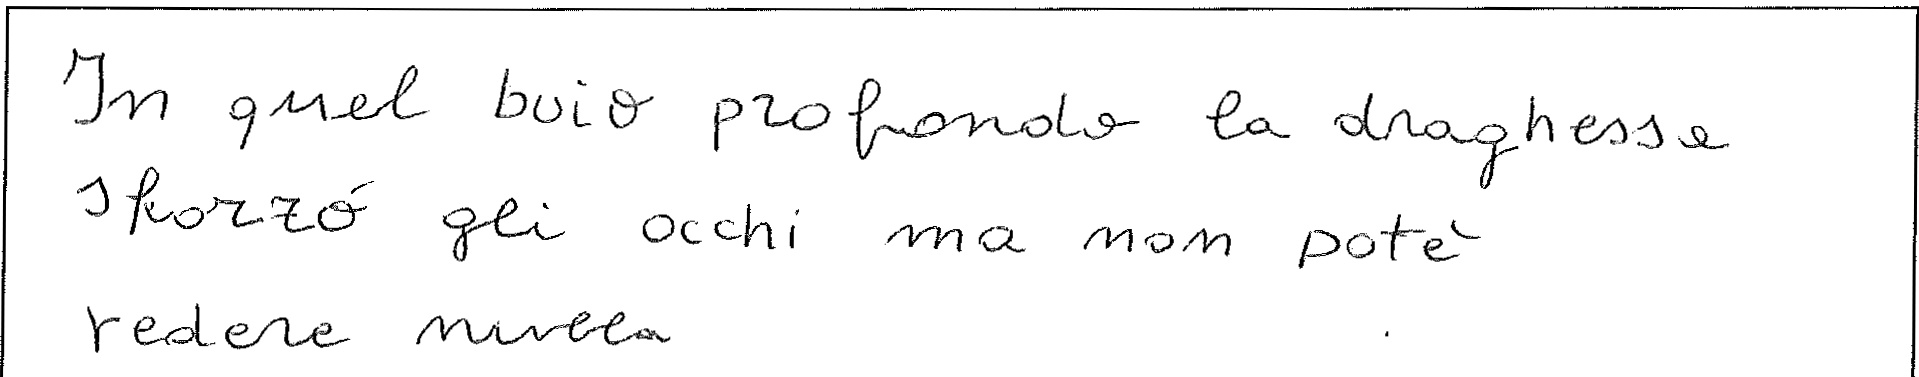 In quel buio profondo la draghessa
sforzó gli occhi ma non potè
vedere nulla